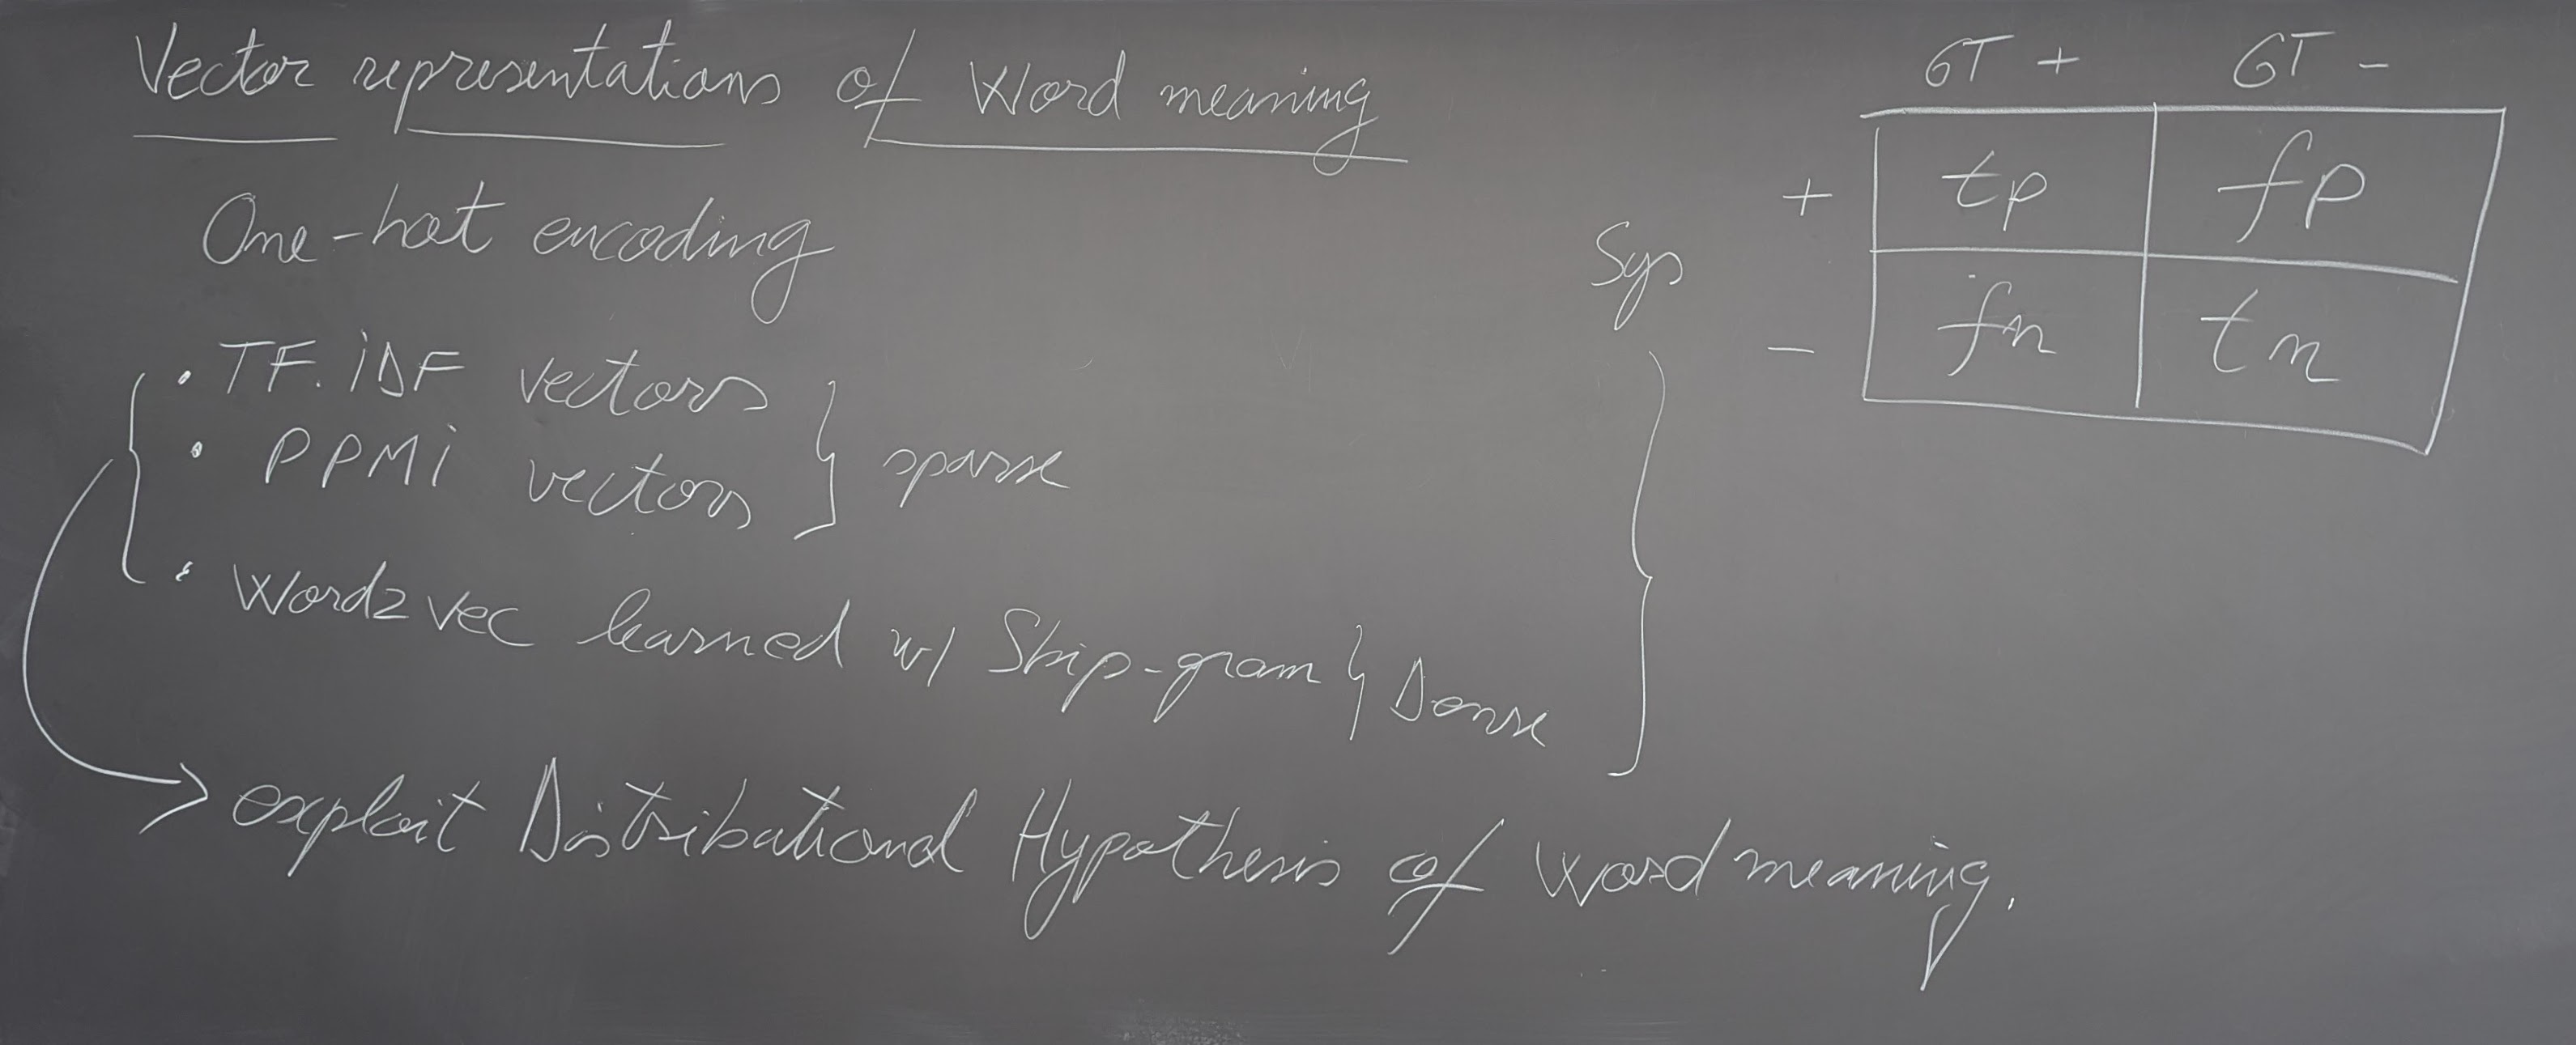 Vector representations of Word meaning
One-hot encoding
• TF.iDF vectors
• PPMi vectors } sparse
• Word2Vec learned w/ Skip-gram } Dense
→ exploit Distributional Hypothesis of Word meaning.
GT + GT -
Sys
+ tp fp
- fn tn